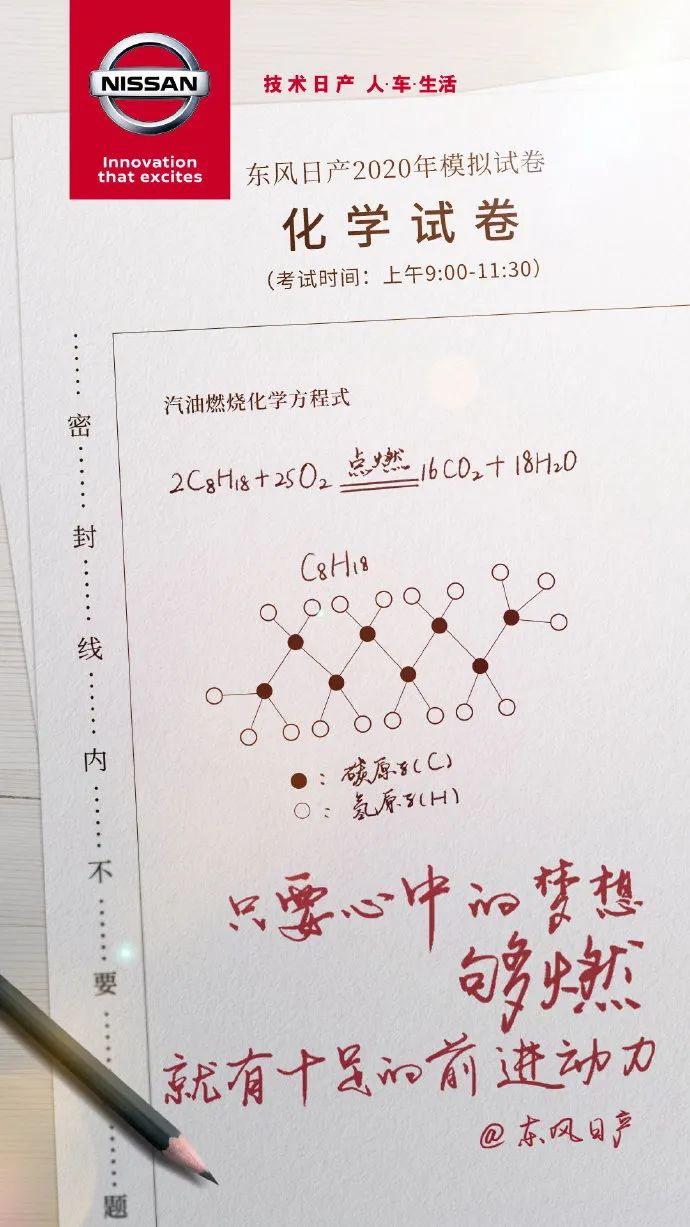 NISSAN
Innovation
that excites
技术日产 人·车·生活
东风日产2020年模拟试卷
化学试卷
（考试时间：上午9:00-11:30）
汽油燃烧化学方程式
2C₈H₁₈+25O₂ 点燃 16CO₂+18H₂O
C₈H₁₈
：碳原子(C)
：氢原子(H)
密封线内不要题
只要心中的梦想
够燃
就有十足的前进动力
@东风日产